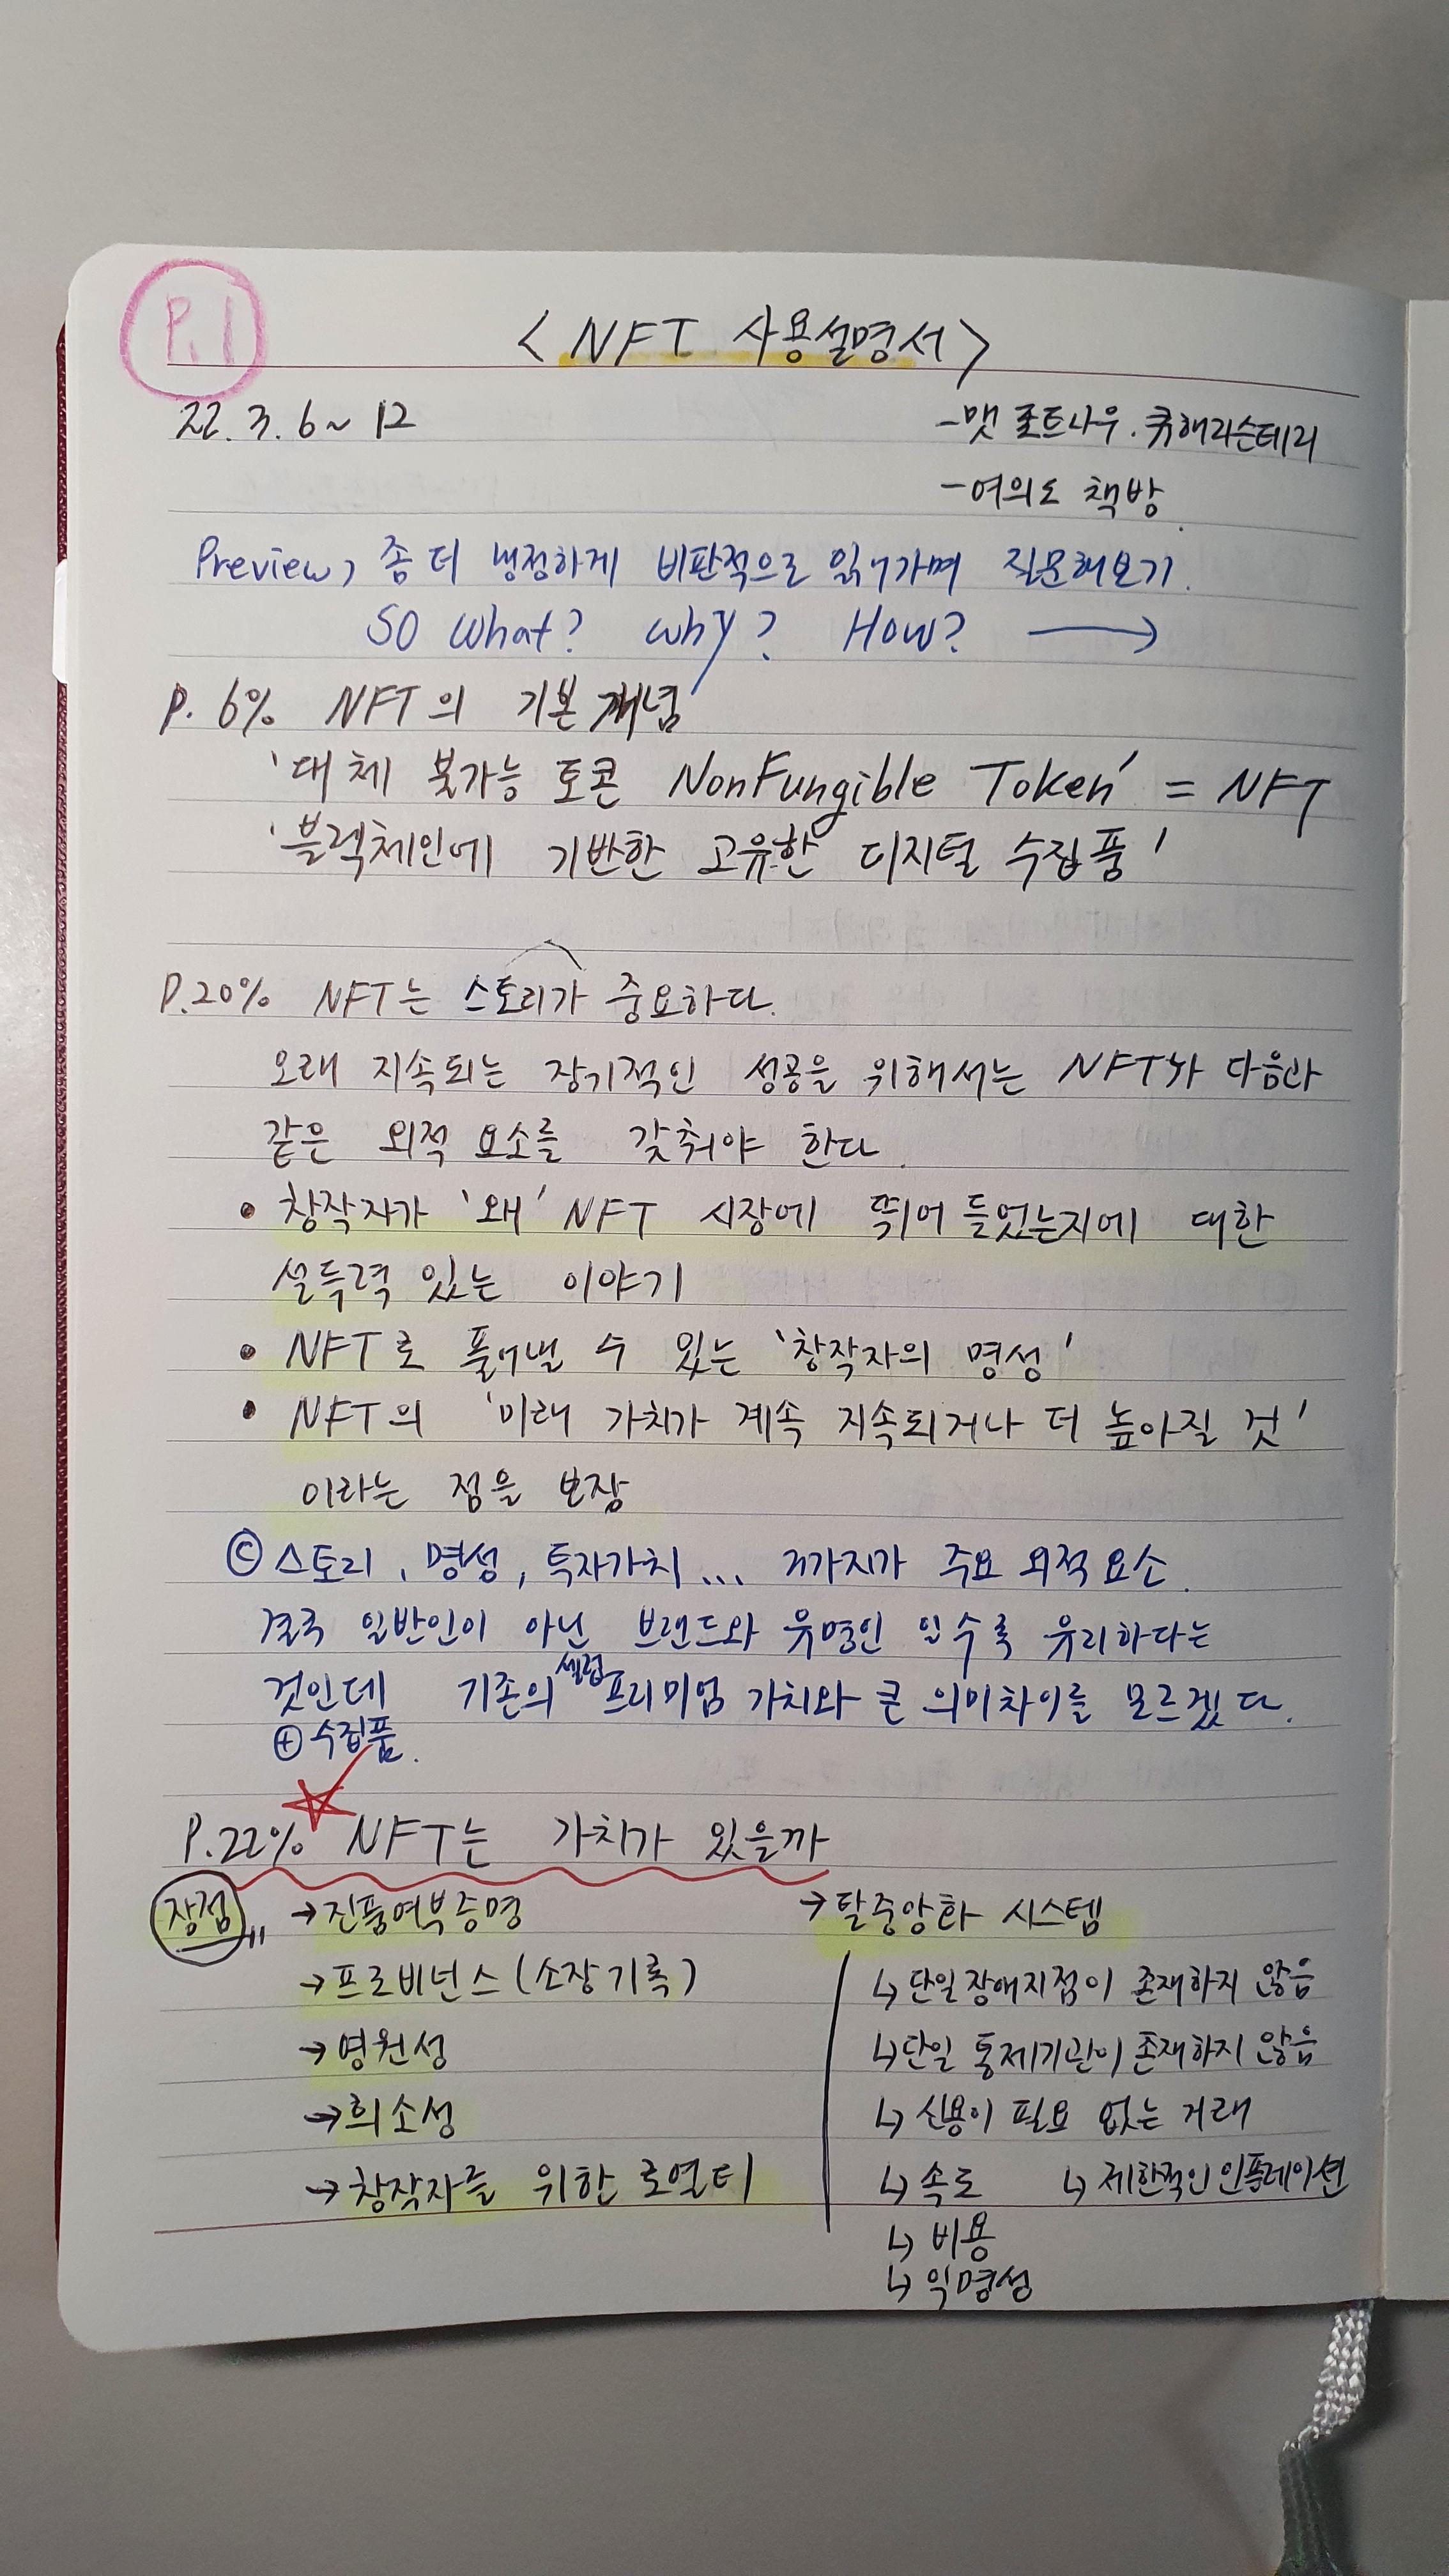 P.1
< NFT 사용설명서 >
22. 3. 6 ~ 12
- 맷 포트나우. 큐해리슨테리
- 여의도 책방
Preview, 좀 더 냉정하게 비판적으로 읽어가며 질문해보기.
SO What? Why? How? →
P. 6% NFT의 기본 개념
'대체 불가능 토큰 NonFungible Token' = NFT
'블럭체인에 기반한 고유한 디지털 수집품'
P.20% NFT는 스토리가 중요하다.
오래 지속되는 장기적인 성공을 위해서는 NFT가 다음과
같은 외적 요소를 갖춰야 한다.
• 창작자가 '왜' NFT 시장에 뛰어 들었는지에 대한
설득력 있는 이야기
• NFT로 풀어낼 수 있는 '창작자의 명성'
• NFT의 '미래 가치가 계속 지속되거나 더 높아질 것'
이라는 점을 보장
ⓒ 스토리, 명성, 투자가치... 3가지가 주요 외적 요소.
결국 일반인이 아닌 브랜드와 유명인 일수록 유리하다는
것인데 기존의 셀럽 프리미엄 가치와 큰 의미차이를 모르겠다.
⊕ 수집품.
P.22% NFT는 가치가 있을까
장점 " → 진품여부증명
→ 프로비넌스 (소장기록)
→ 영원성
→ 희소성
→ 창작자를 위한 로열티
→ 탈중앙화 시스템
↳ 단일장애지점이 존재하지 않음
↳ 단일 통제기관이 존재하지 않음
↳ 신용이 필요 없는 거래
↳ 속도 ↳ 제한적인 인플레이션
↳ 비용
↳ 익명성